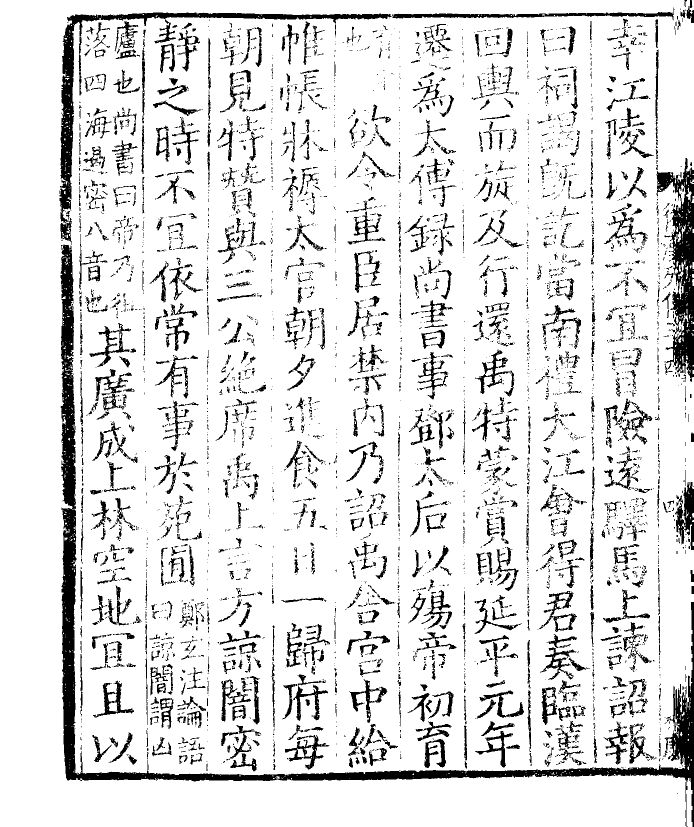 幸江陵以爲不宜冒險遠驛馬上諫詔報
曰祠謁旣訖當南禮大江會得君奏臨漢
回輿而旋及行還禹特蒙賞賜延平元年
遷爲太傅録尚書事鄧太后以殤帝初育
欲令重臣居禁内乃詔禹舍宮中給
帷帳牀褥太官朝夕進食五日一歸府每
朝見特贊與三公絶席禹上言方諒闇密
靜之時不宜依常有事於苑囿
鄭玄注論語
曰諒闇謂凶
廬也尚書曰帝乃徂
落四海遏密八音也
其廣成上林空地宜且以